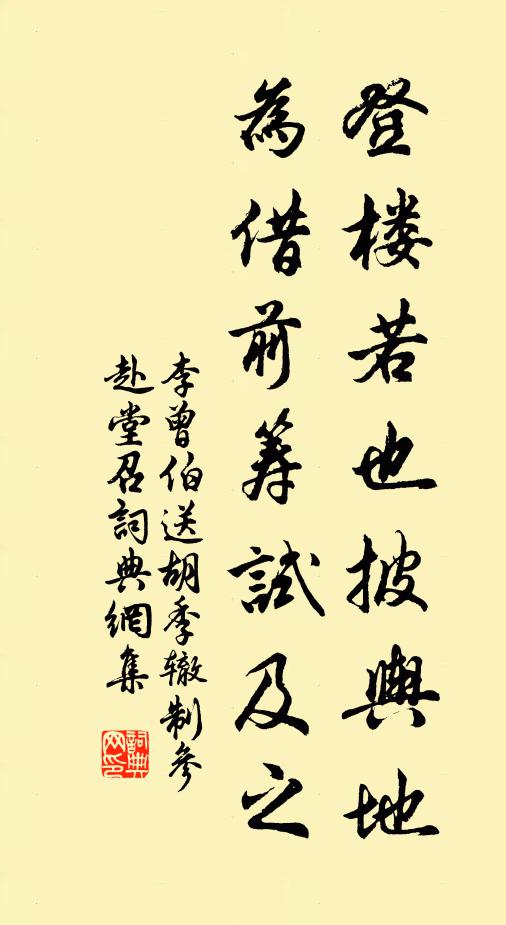 登楼若也披輿地
為借前筹試及之
李曾伯送胡季辙制參
赴堂召詞典網集
詞典网印